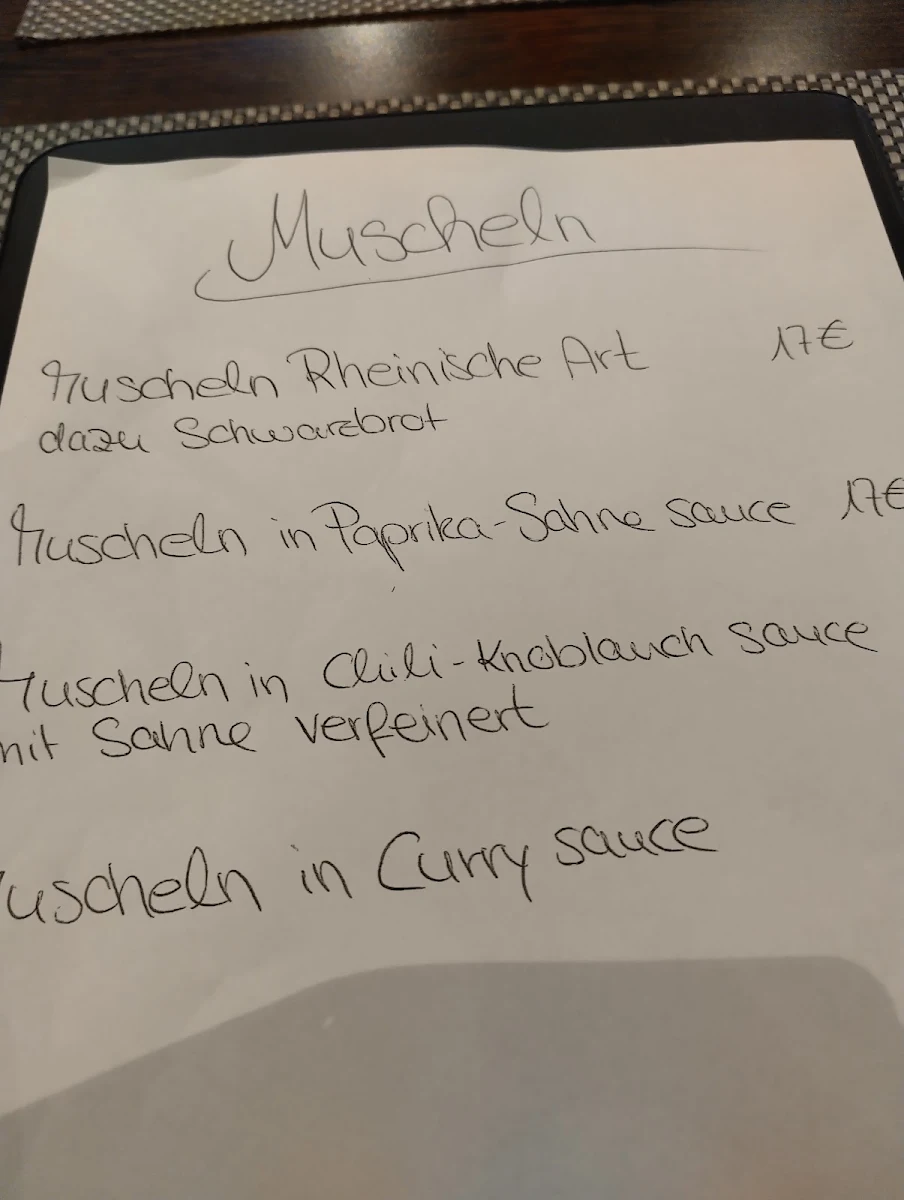 Muscheln
Muscheln Rheinische Art 17€
dazu Schwarzbrot
Muscheln in Paprika-Sahne sauce 17€
Muscheln in Chili-Knoblauch sauce
mit Sahne verfeinert
Muscheln in Curry sauce